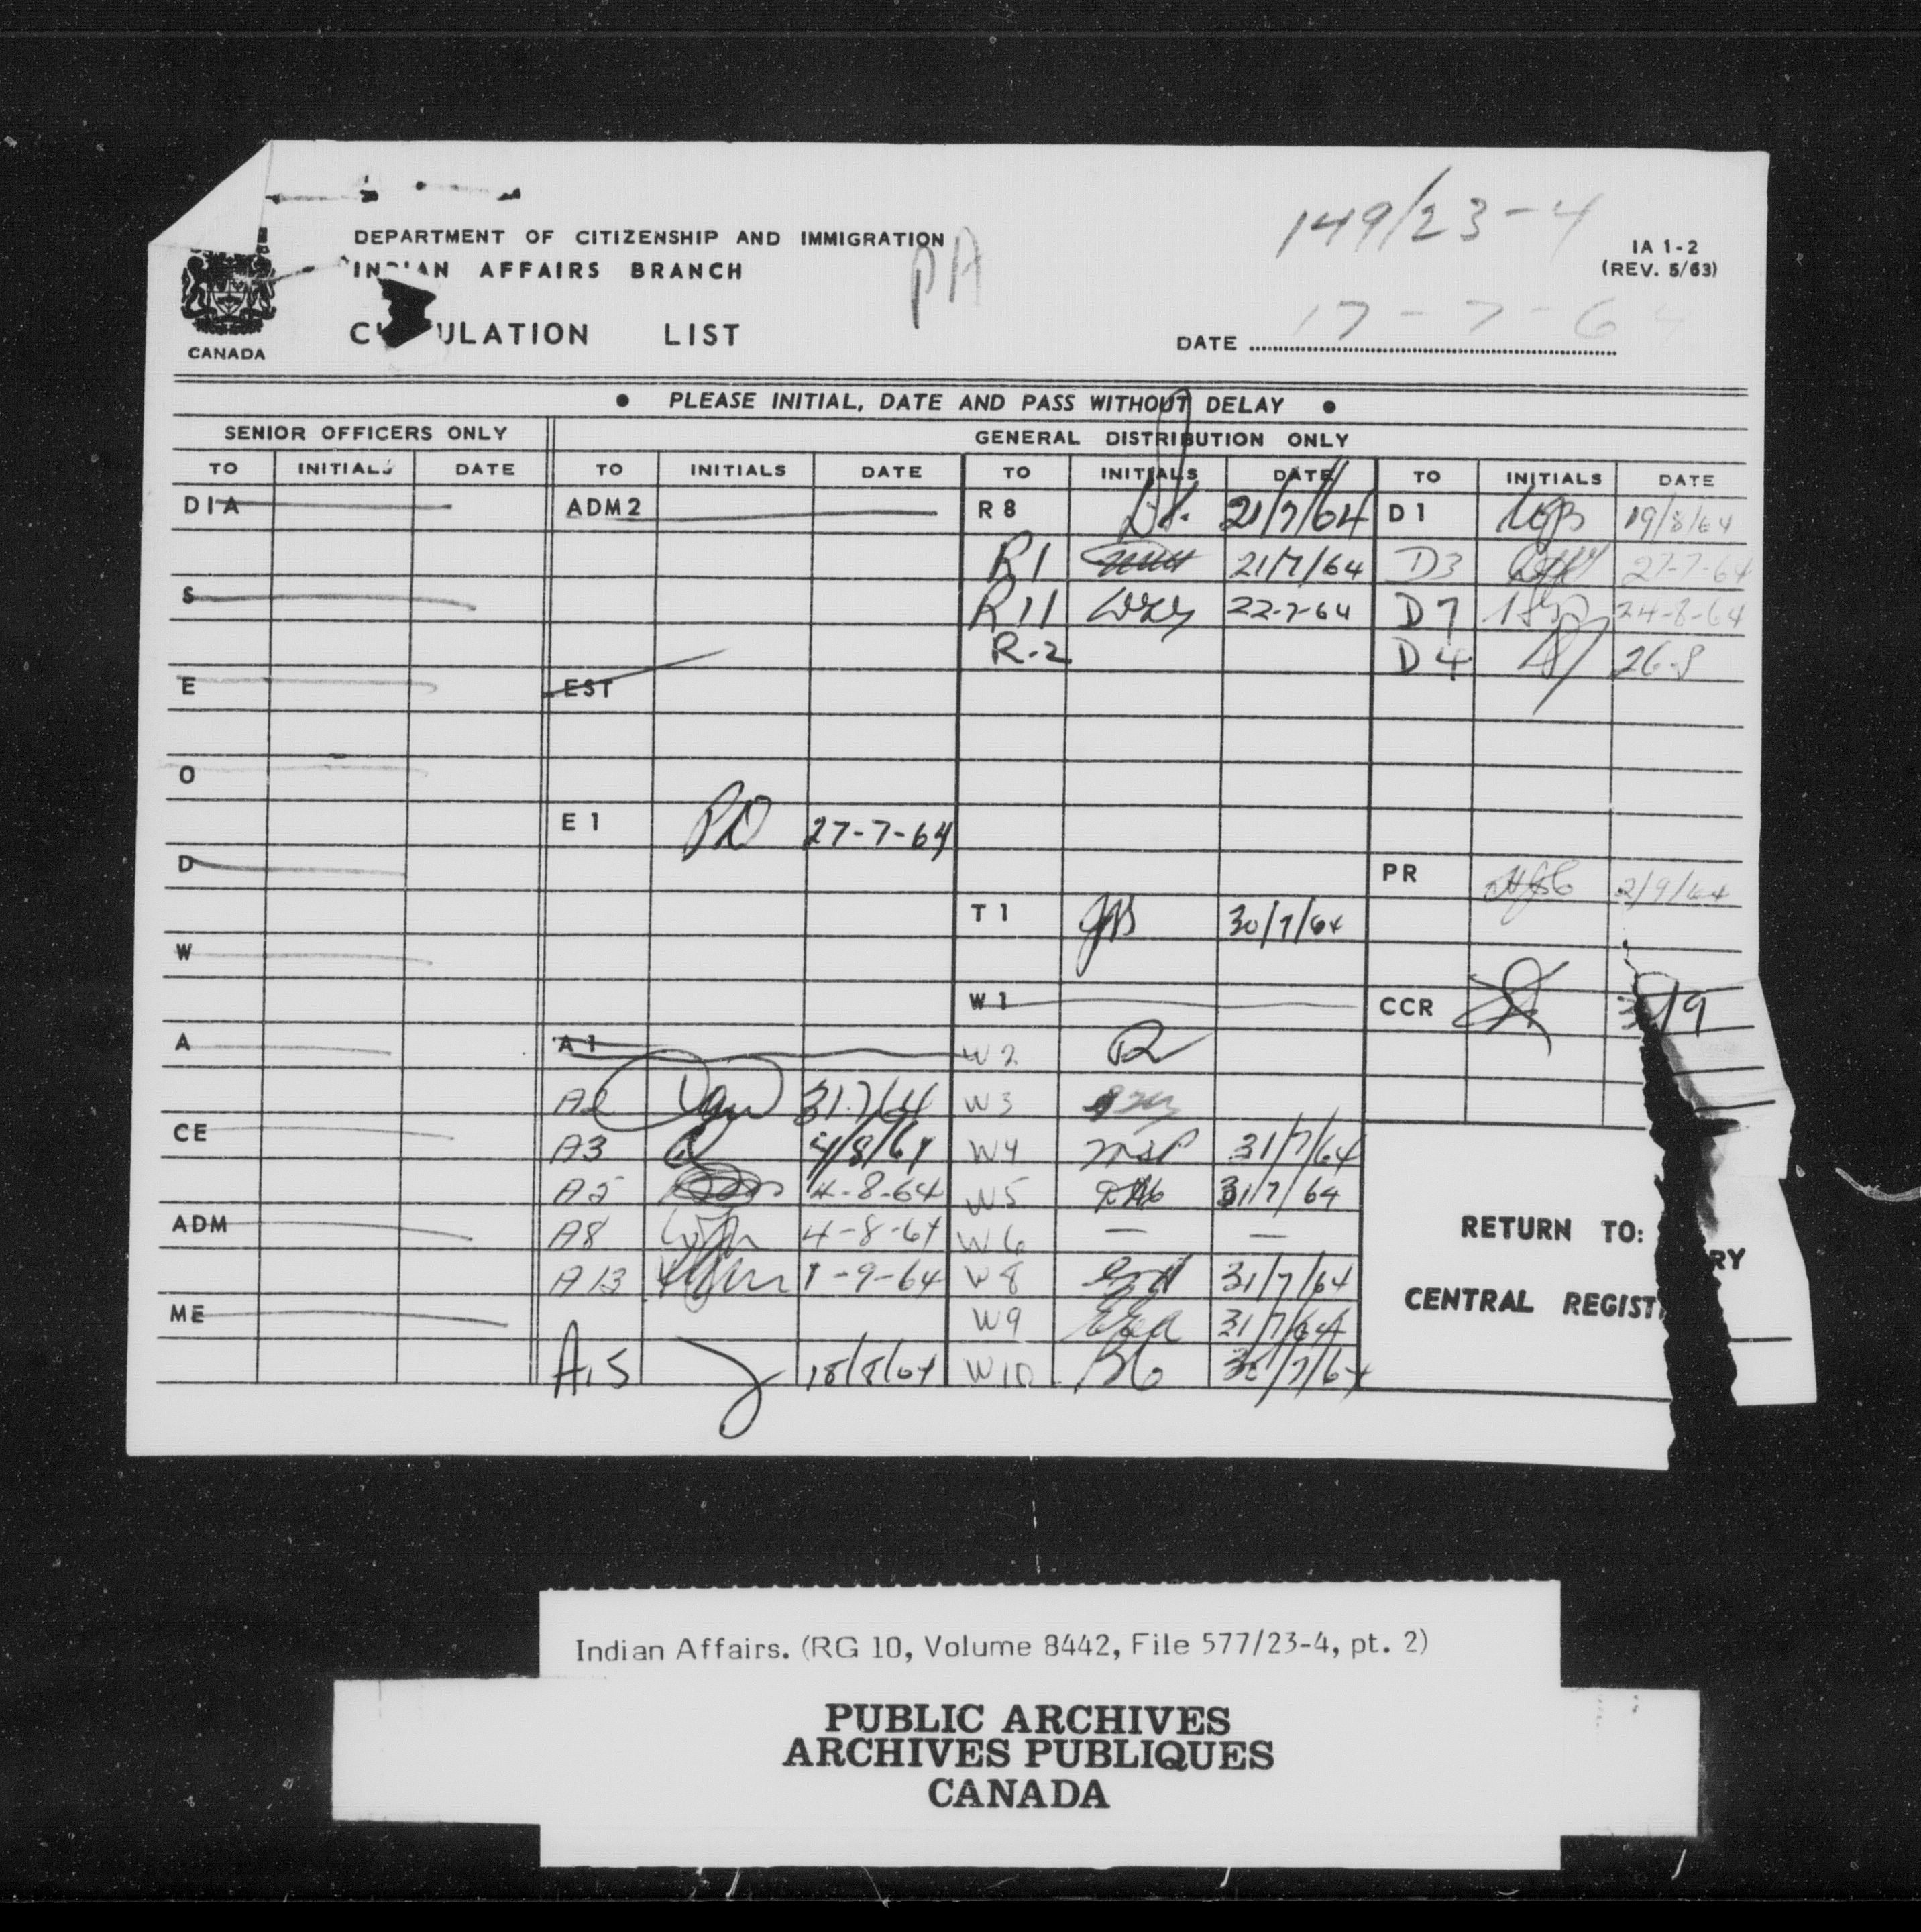 149/23-4
DEPARTMENT OF CITIZENSHIP AND IMMIGRATION
IA 1-2
INDIAN AFFAIRS BRANCH
PA
(REV. 5/63)
CIRCULATION LIST
DATE 17-7-64
CANADA
• PLEASE INITIAL, DATE AND PASS WITHOUT DELAY •
SENIOR OFFICERS ONLY GENERAL DISTRIBUTION ONLY
TO INITIALS DATE TO INITIALS DATE TO INITIALS DATE TO INITIALS DATE
DIA ADM2 R8 21/7/64 D1 19/8/64
R1 21/7/64 D3 27-7-64
S R11 22-7-64 D7 24-8-64
R-2 D4 26-8
E EST
O
E1 27-7-64
D PR 2/9/64
T1 30/7/64
W
W1 CCR /9
A A1 W2
A2 31.7/64 W3
CE A3 4/8/64 W4 31/7/64
A5 4-8-64 W5 31/7/64
ADM A8 4-8-64 W6 — — RETURN TO:
A13 1-9-64 W8 31/7/64 CENTRAL REGISTRY
ME W9 31/7/64
A15 18/8/64 W10
Indian Affairs. (RG 10, Volume 8442, File 577/23-4, pt. 2)
PUBLIC ARCHIVES
ARCHIVES PUBLIQUES
CANADA